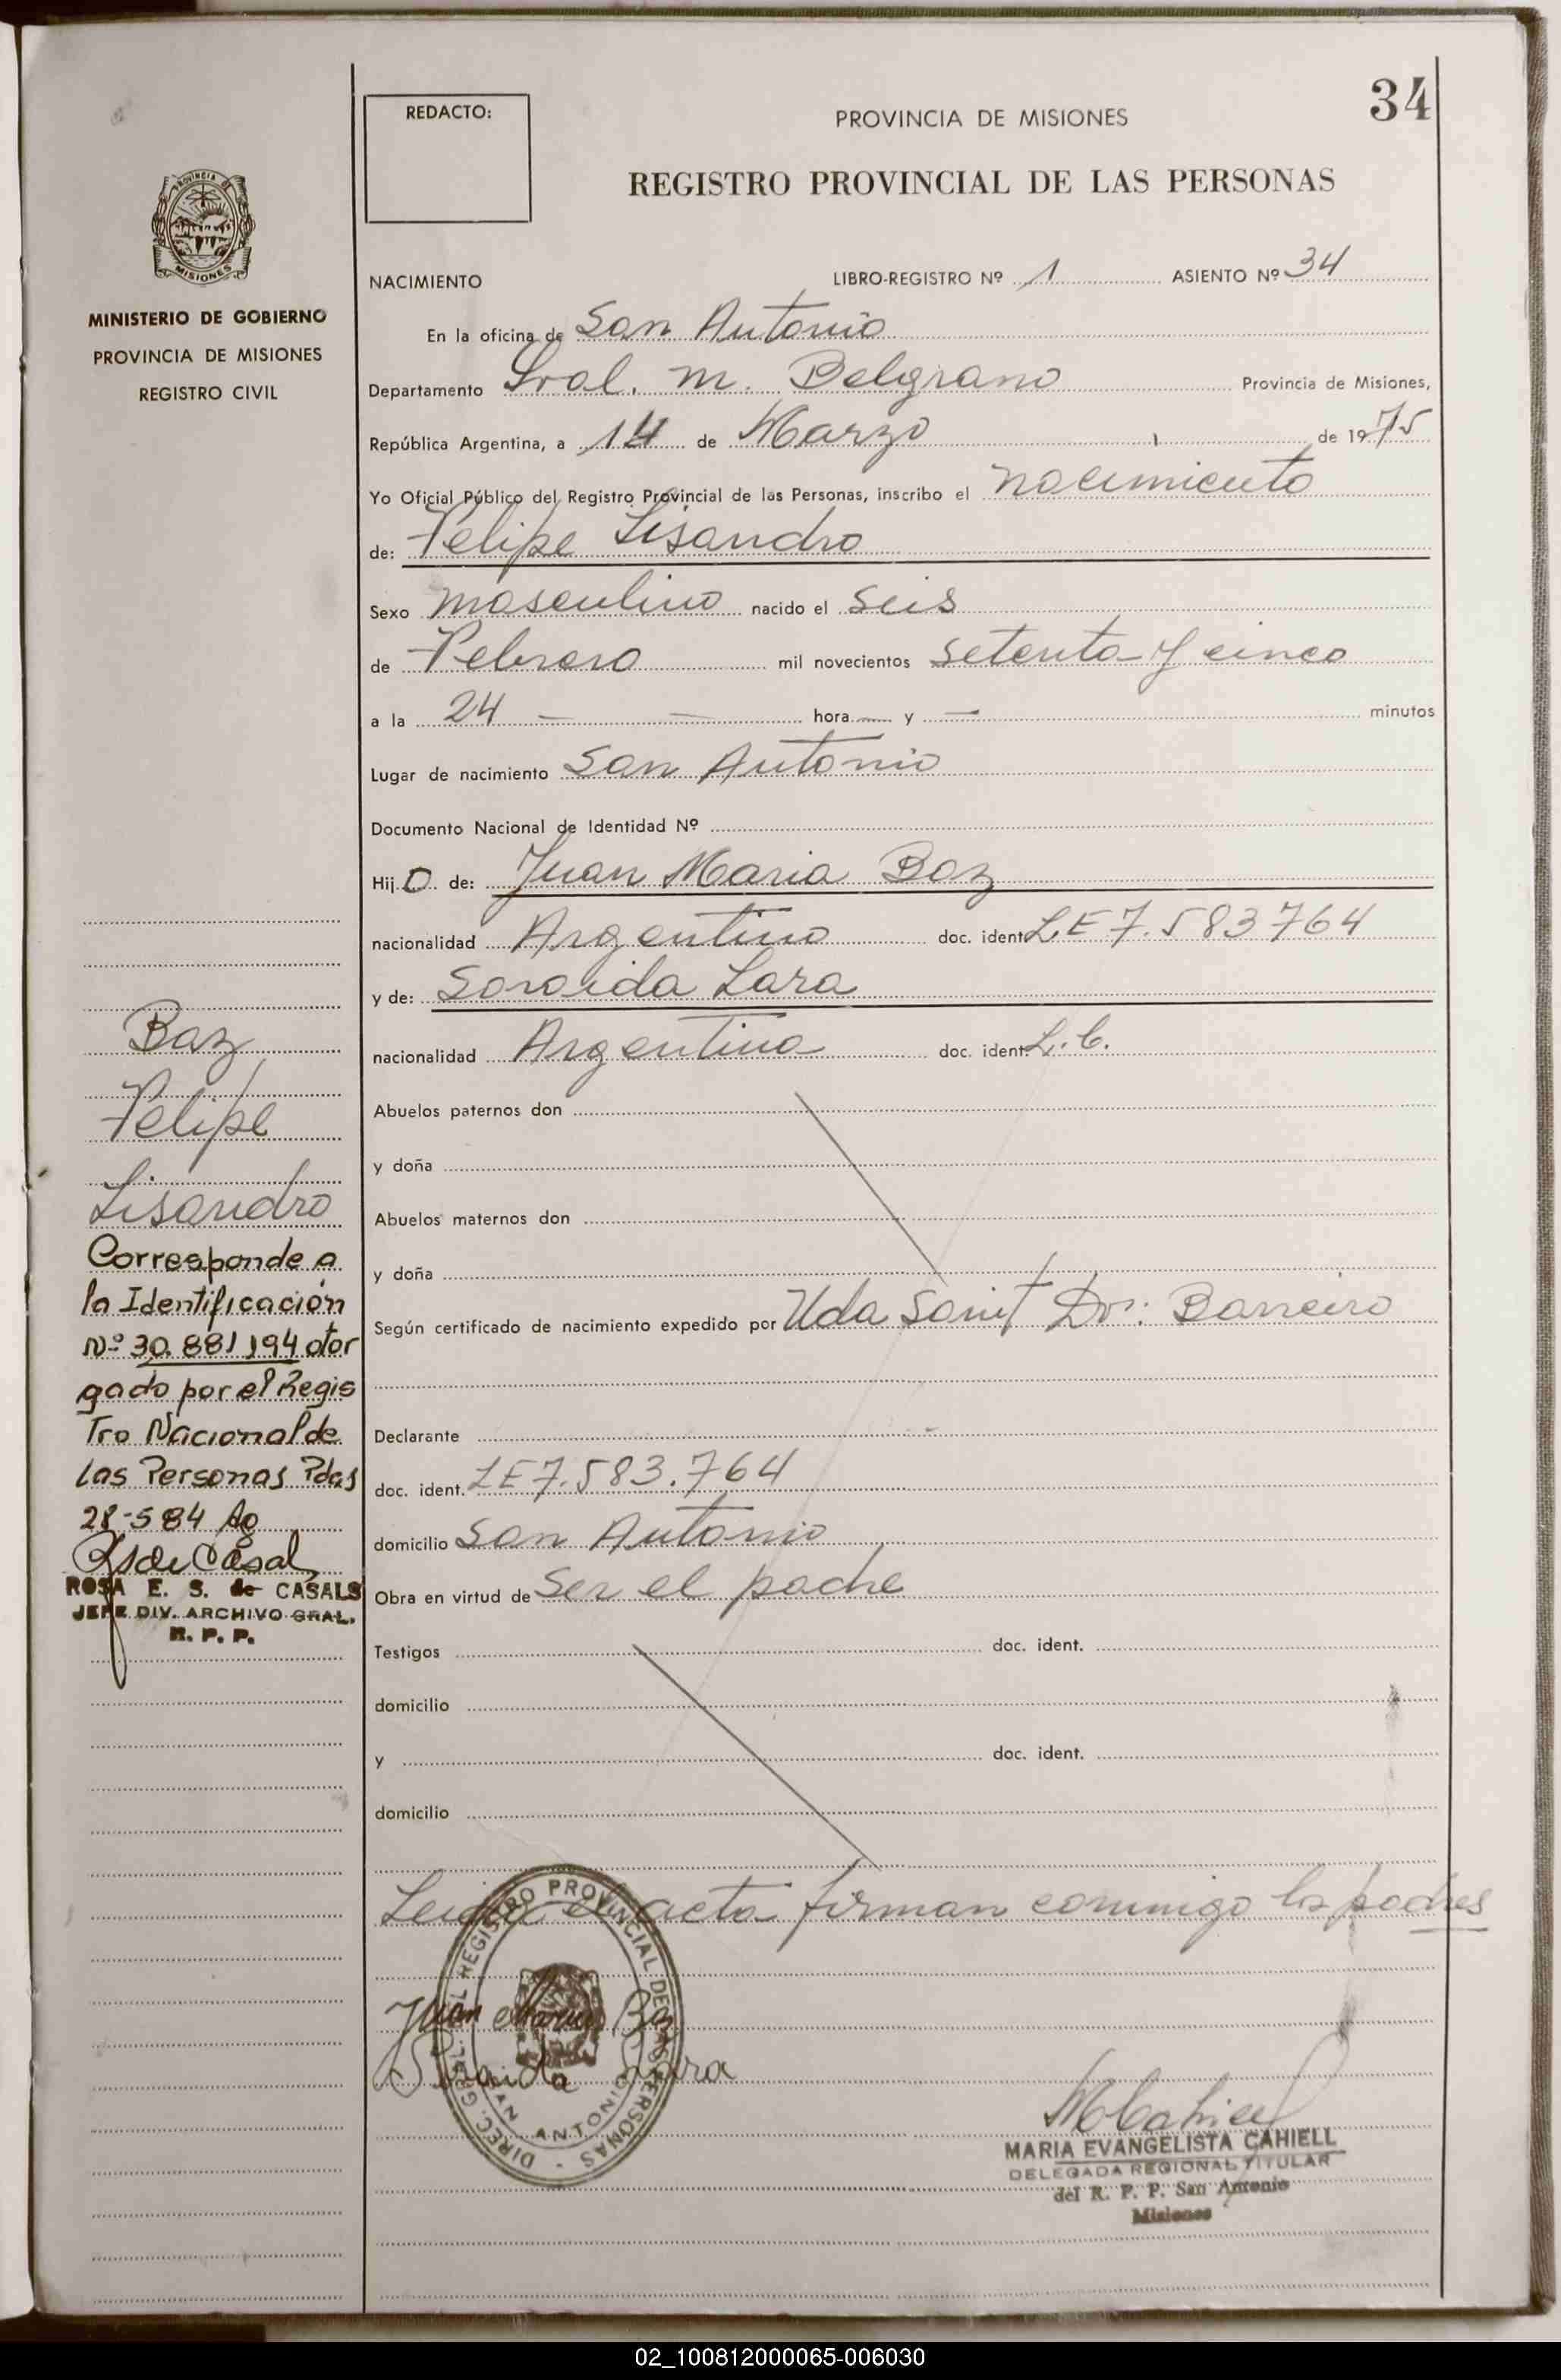 34
REDACTO:
PROVINCIA DE MISIONES
REGISTRO PROVINCIAL DE LAS PERSONAS
PROVINCIA DE
MISIONES
MINISTERIO DE GOBIERNO
PROVINCIA DE MISIONES
REGISTRO CIVIL
NACIMIENTO LIBRO-REGISTRO Nº 1 ASIENTO Nº 34
En la oficina de San Antonio
Departamento Gral. M. Belgrano Provincia de Misiones,
República Argentina, a 14 de Marzo de 1975
Yo Oficial Público del Registro Provincial de las Personas, inscribo el nacimiento
de: Felipe Lisandro
Sexo masculino nacido el seis
de Febrero mil novecientos setenta y cinco
a la 24 — — hora — y — minutos
Lugar de nacimiento San Antonio
Documento Nacional de Identidad Nº
Hijo de: Juan Maria Baz
nacionalidad Argentino doc. ident. LE 7.583764
y de: Soraida Lara
nacionalidad Argentina doc. ident. L.C.
Abuelos paternos don
y doña
Abuelos maternos don
y doña
Según certificado de nacimiento expedido por Uda Sanit Dr: Barreiro
Declarante
doc. ident. LE 7.583.764
domicilio San Antonio
Obra en virtud de Ser el padre
Testigos doc. ident.
domicilio
y doc. ident.
domicilio
Leida el acta firman conmigo los padres
Juan Maria Baz
Soraida Lara
DIREC. GRAL. DEL REGISTRO PROVINCIAL DE LAS PERSONAS -
SAN ANTONIO
MCahiell
MARIA EVANGELISTA CAHIELL
DELEGADA REGIONAL TITULAR
del R. P. P. San Antonio
Misiones
Baz
Felipe
Lisandro
Corresponde a
la Identificación
Nº 30.881194 otor
gado por el Regis
tro Nacional de
las Personas Pdas
28-5 84
ROSA E. S. de CASALS
JEFE DIV. ARCHIVO GRAL.
R. P. P.
02_100812000065-006030